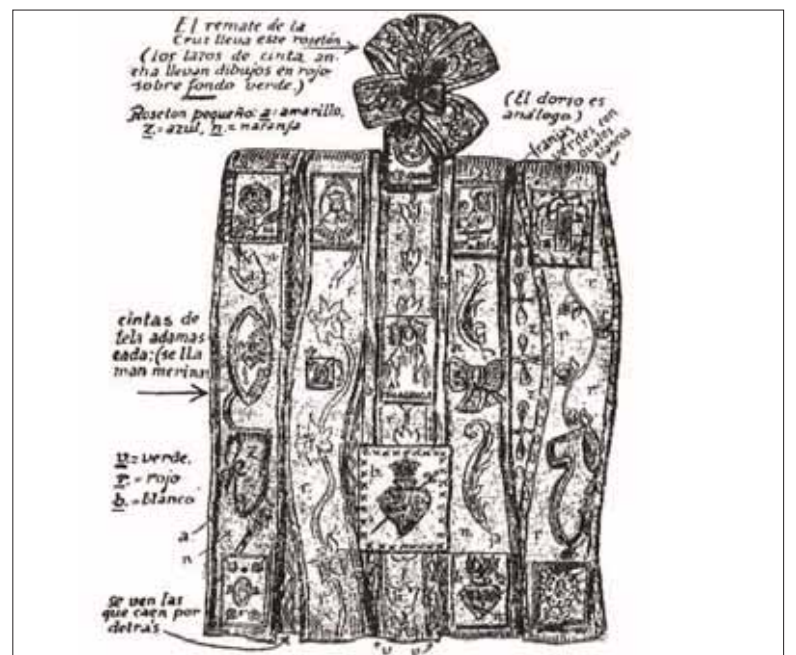 El remate de la
Crus lleva este rosetón
(los lazos de cinta an-
cha llevan dibujos en rojo
sobre fondo verde.)
Roseton pequeño: a=amarillo,
z.=azul, n.=naranja
(El dorso es
análogo)
franjas
verdes con
ovalos
blancos
cintas de
tela adamas
cada; (se lla
man merinas
v=verde,
r.=rojo
b.=blanco
a
n
se ven las
que caen por
detrás